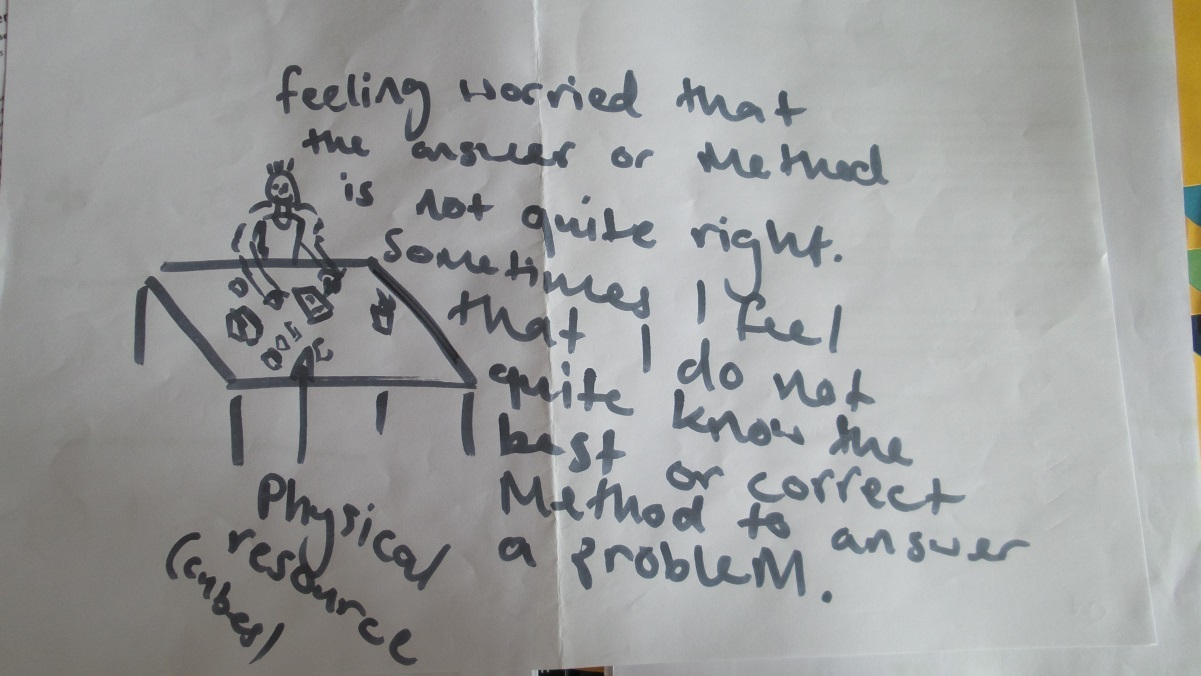 feeling worried that
the answer or Method
is not quite right.
Sometimes I feel
that I do not
quite know the
best or correct
Method to answer
a probleM.
Physical
resource
(cubes)